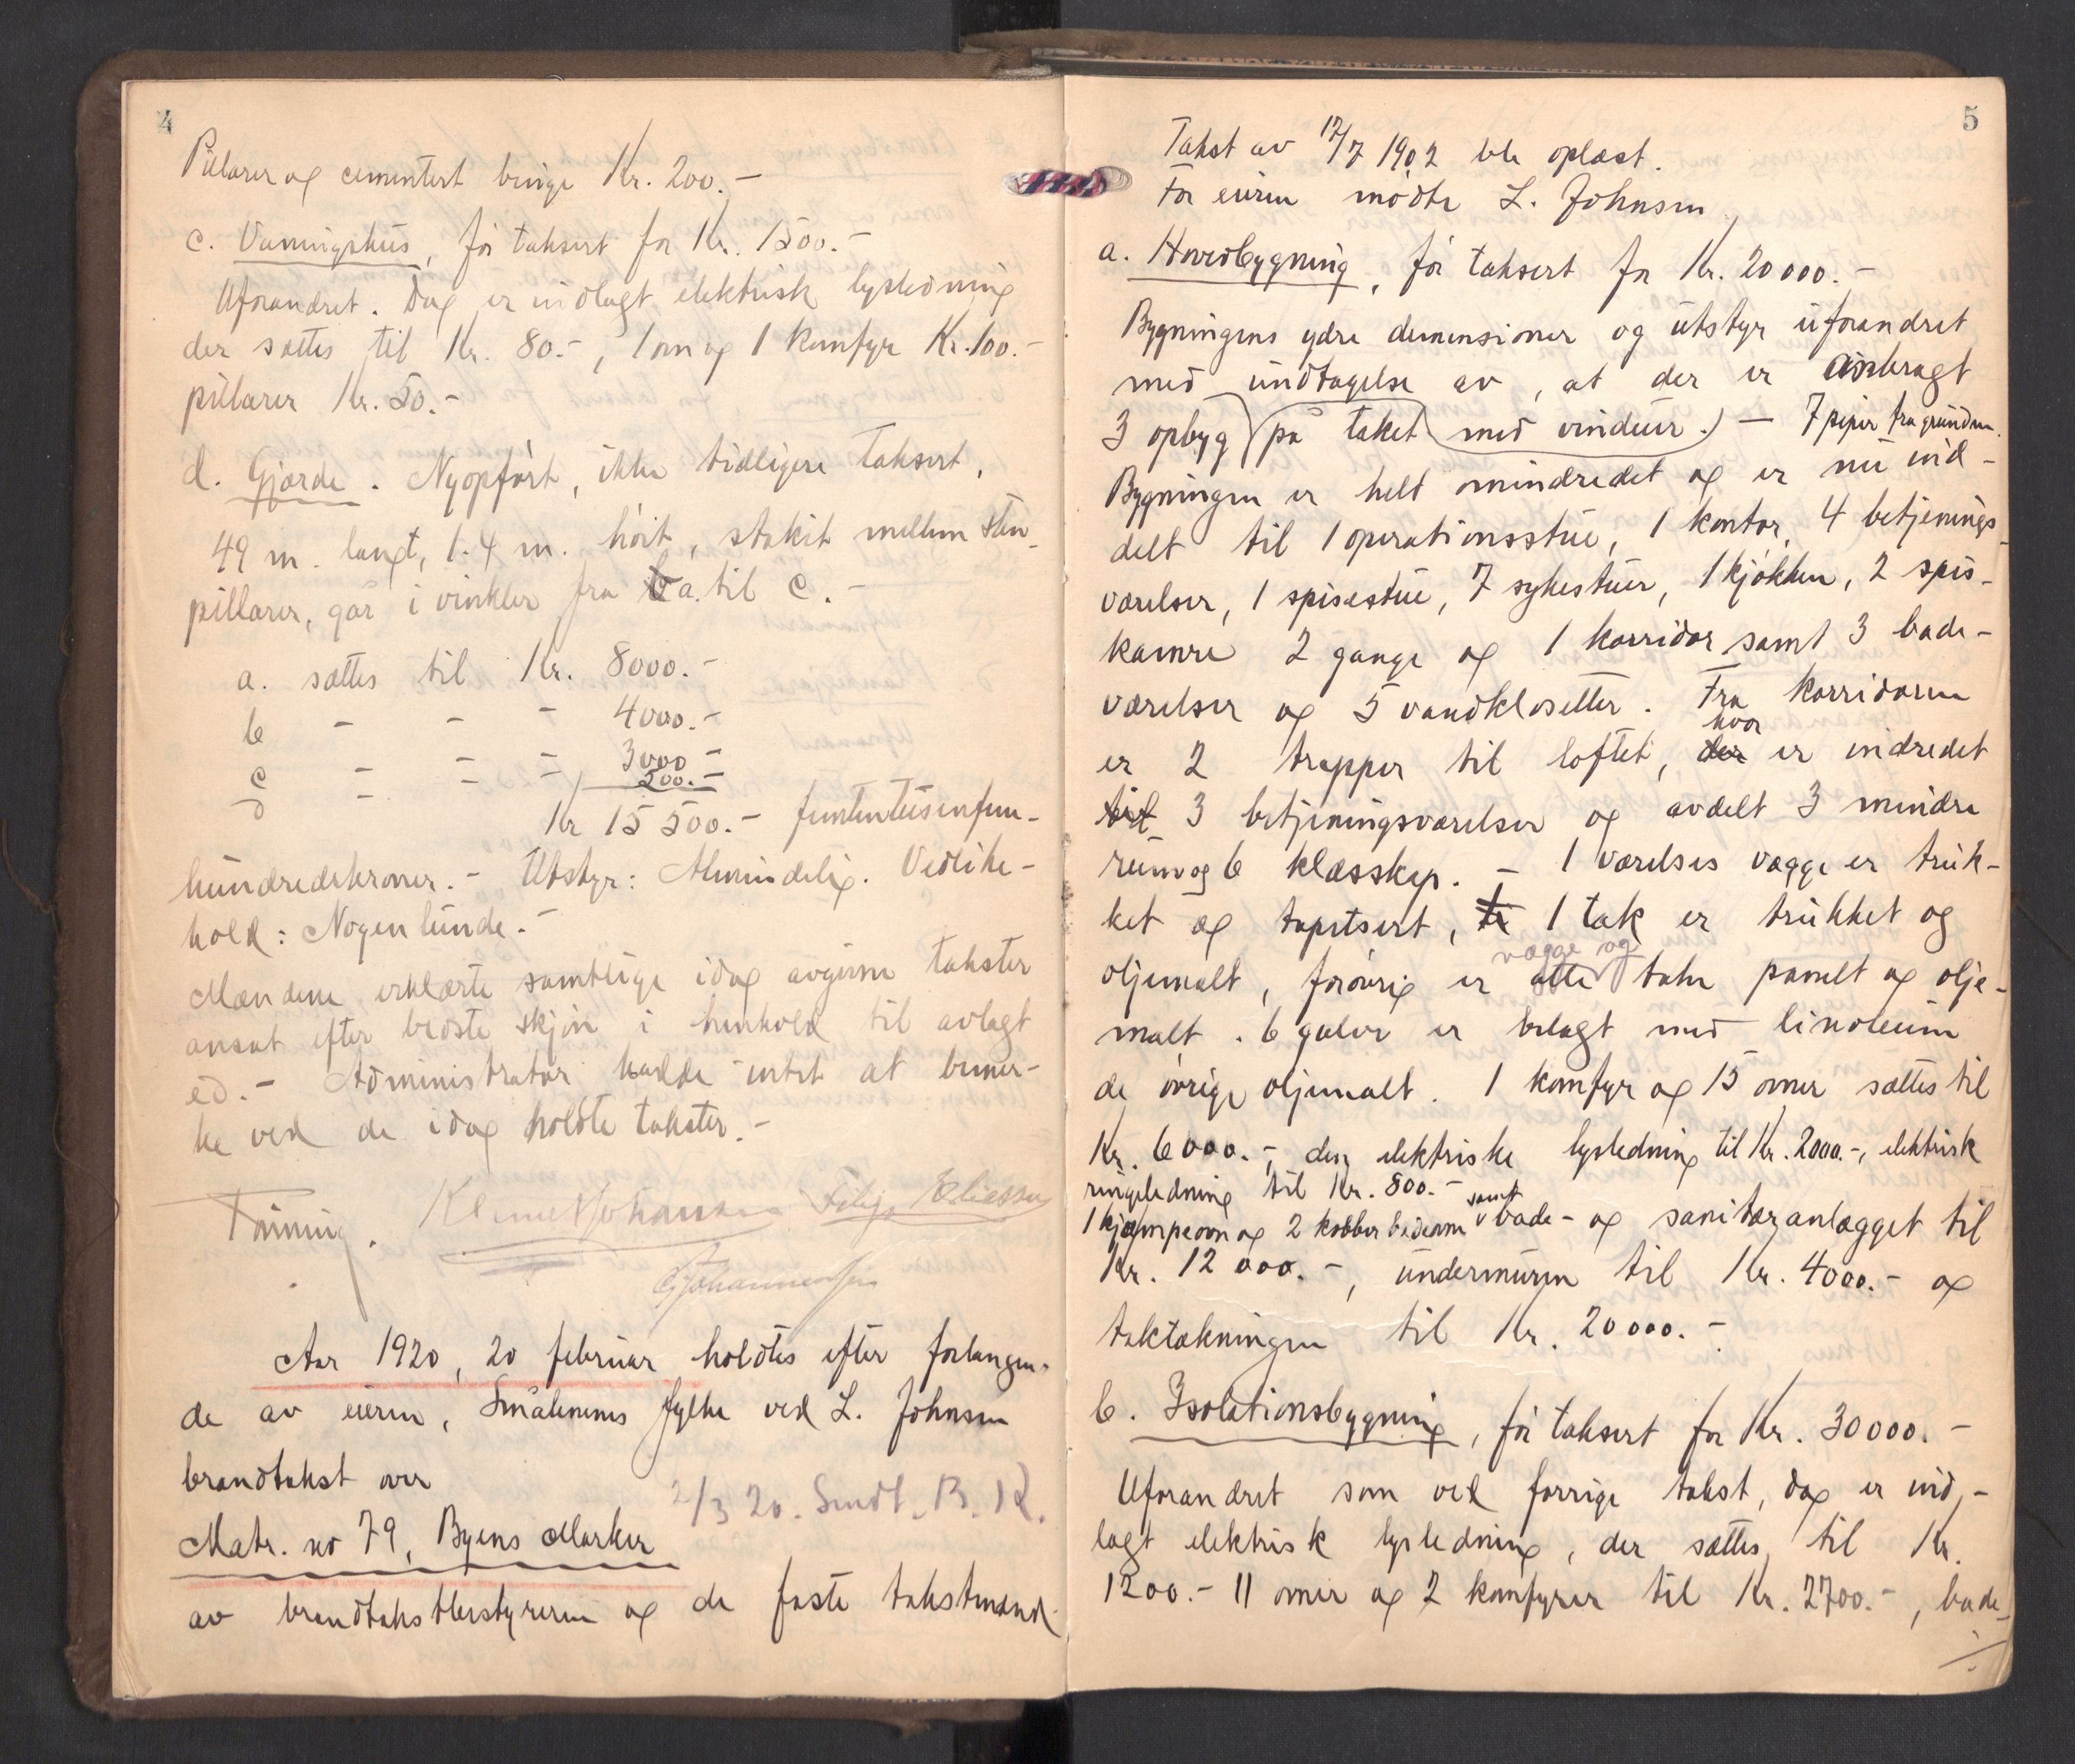 4
Pillarer og cementert binge Kr. 200.-
c. Vaaningshus, før taksert for Kr. 1500.-
Uforandret. Dog er indlagt elektrisk lysledning
der sættes til Kr. 80.-, 1 ovn og 1 komfyr Kr. 100.-
pillarer Kr. 50.-
d. Gjærde. Nyopført, ikke tidligere taksert,
49 m. langt, 1.4 m. høit, stakit mellem sten-
pillarer, går i vinkler fra a. til c.-
a. sættes til Kr. 8000.-
b - - - 4000.-
c - - - 3000.-
d - - - 500.-
Kr 15 500.- femtentusenfem-
hundredekroner.- Utstyr: Almindelig. Vedlike-
hold: Nogenlunde.-
Mændene erklærte samtlige idag avgivne takster
ansat efter bedste skjøn i henhold til avlagt
ed.- Administrator hadde intet at bemer-
ke ved de idag holdte takster.-
Klemet Johansen Filip Eliassen
Johannessen
Aar 1920, 20 februar holdtes efter forlangen-
de av eieren, Smålenenes fylke ved L. Johnsen
brandtakst over
2/3 20. Sendt. B. K.
Matr. no 79, Byens Marker
av brandtakstbestyreren og de faste takstmænd.
5
Takst av 17/7 1902 ble oplæst.
For eieren mødte L. Johnsen.
a. Hovedbygning, før taksert for Kr. 20 000.-
Bygningens ydre demensioner og utstyr uforandret
med undtagelse av, at der er anbragt
3 opbyg på taket med vinduer.) - 7 piper fra grunden.
Bygningen er helt omindredet og er nu ind-
delt til 1 operationsstue, 1 kontor, 4 betjenings-
værelser, 1 spisestue, 7 sykestuer, 1 kjøkken, 2 spis-
kamre 2 gange og 1 korridor samt 3 bade-
værelser og 5 vandklosetter. Fra korridoren
er 2 trapper til loftet, der hvor er indredet
til 3 betjeningsværelser og avdelt 3 mindre
rum og 6 klæsskap. - 1 værelses vægge er truk-
ket og tapetsert, 1 tak er trukket og
oljemalt, forøvrig er alle vægge og take panelt og olje-
malt. 6 gulve er belagt med linoleum
de øvrige oljemalt. 1 komfyr og 15 ovner sættes til
Kr. 6000.-, den elektriske lysledning til Kr. 2000.-, elektrisk
ringeledning til Kr. 800.-
1 kjæmpeovn og 2 kobber badeovne samt bade- og sanitæranlægget til
Kr. 12 000.-, undermuren til Kr. 4000.- og
taktækningen til Kr. 20 000.-
b. Isolationsbygning, før taksert for Kr. 30 000.-
Uforandret som ved forrige takst, dog er ind-
lagt elektrisk lysledning, der sættes til Kr.
1200.- 11 ovner og 2 komfyrer til Kr. 2700.-, bade-